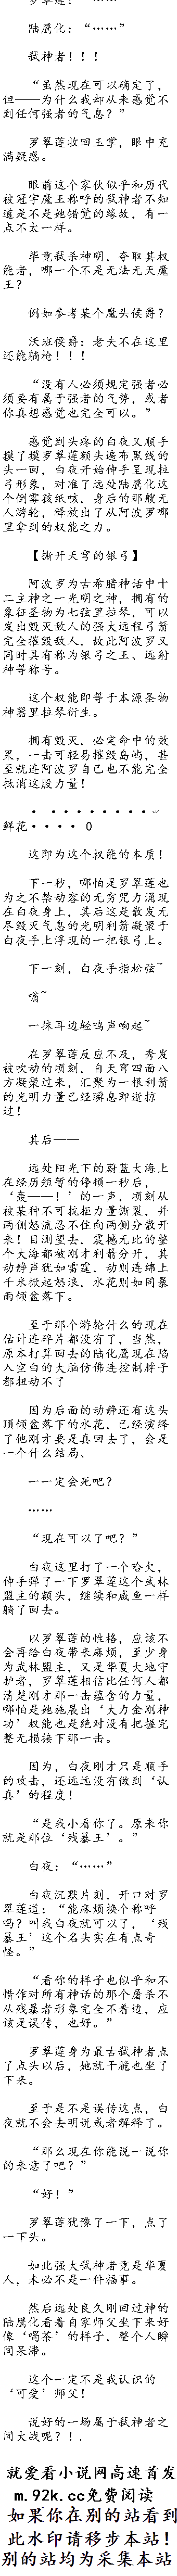 罗翠莲：“……”
陆鹰化：“……”
弑神者！！！
“虽然现在可以确定了，
但——为什么我却从来感觉不
到任何强者的气息？”
罗翠莲收回玉掌，眼中充
满疑惑。
眼前这个家伙似乎和历代
被冠宇魔王称呼的弑神者不知
道是不是她错觉的缘故，有一
点不太一样。
毕竟弑杀神明，夺取其权
能者，哪一个不是无法无天魔
王？
例如参考某个魔头侯爵？
沃班侯爵：老夫不在这里
还能躺枪！！！
“没有人必须规定强者必
须要有属于强者的气势，或者
你真想感觉也完全可以。”
感觉到头疼的白夜又顺手
摸了摸罗翠莲额头遍布黑线的
头一回，白夜开始伸手呈现拉
弓形象，对准了远处陆鹰化这
个倒霉孩纸咳，身后的那艘无
人游轮，释放出了从阿波罗哪
里拿到的权能之力。
【撕开天穹的银弓】
阿波罗为古希腊神话中十
二主神之一光明之神，拥有的
象征圣物为七弦里拉琴，可以
发出毁灭敌人的强大远程弓箭
完全摧毁敌人，故此阿波罗又
同时具有称为银弓之王、远射
神等称号。
这个权能即等于本源圣物
神器里拉琴衍生。
拥有毁灭，必定命中的效
果，一击可轻易摧毁岛屿，甚
至就连阿波罗自己也不能完全
抵消这股力量！
· ·········
鲜花···· 0
这即为这个权能的本质！
下一秒，哪怕是罗翠莲也
为之不禁动容的无穷咒力涌现
在白夜身上，其后这是散发无
尽毁灭气息的光明利箭凝聚于
白夜手上浮现的一把银弓上。
下一刻，白夜手指松弦~
嗡~
一抹耳边轻鸣声响起~
在罗翠莲反应不及，秀发
被吹动的顷刻，自天穹四面八
方凝聚过来，汇聚为一根利箭
的光明力量已经瞬息即逝掠
过！
其后——
远处阳光下的蔚蓝大海上
在经历短暂的停顿一秒后，
‘轰——！’的一声，顷刻从
被某种不可抗拒力量撕裂，并
两侧怒流忍不住向两侧分散开
来！目测望去，震撼无比的整
个大海都被刚才利箭分开，其
动静声犹如雷霆，动则连绵上
千米掀起怒浪，水花则如同暴
雨倾盆落下。
至于那个游轮什么的现在
估计连碎片都没有了，当然，
原本打算回去的陆化鹰现在陷
入空白的大脑仿佛连控制脖子
都扭动不了
因为后面的动静还有这头
顶倾盆落下的水花，已经演绎
了他刚才要是真回去了，会是
一个什么结局、
——一定会死吧？
……
“现在可以了吧？”
白夜这里打了一个哈欠，
伸手弹了一下罗翠莲这个武林
盟主的额头，继续和咸鱼一样
躺了回去。
以罗翠莲的性格，应该不
会再给白夜带来麻烦，至少身
为武林盟主，又是华夏大地守
护者，罗翠莲相信比任何人都
清楚刚才那一击蕴含的力量，
哪怕是她施展出‘大力金刚神
功’权能也是绝对没有把握完
整无损接下那一击。
因为，白夜刚才只是顺手
的攻击，还远远没有做到‘认
真’的程度！
“是我小看你了。原来你
就是那位‘残暴王’。”
白夜：“……”
白夜沉默片刻，开口对罗
翠莲道：“能麻烦换个称呼
吗？叫我白夜就可以了，‘残
暴王’这个名头实在有点奇
怪。”
“看你的样子也似乎和不
惜作对所有神话的那个屠杀不
从残暴者形象完全不着边，应
该是误传，也好。”
罗翠莲身为最古弑神者点
了点头以后，她就干脆也坐了
下来。
至于是不是误传这点，白
夜就不会去明说或者解释了。
“那么现在你能说一说你
的来意了吧？”
“好！”
罗翠莲犹豫了一下，点了
一下头。
如此强大弑神者竟是华夏
人，未必不是一件福事。
然后远处良久刚回过神的
陆鹰化看着自家师父坐下来好
像‘喝茶’的样子，整个人瞬
间呆滞。
这个一定不是我认识的
‘可爱’师父！
说好的一场属于弑神者之
间大战呢？！.
就爱看小说网高速首发
m.92k.cc免费阅读
如果你在别的站看到
此水印请移步本站！
别的站均为采集本站